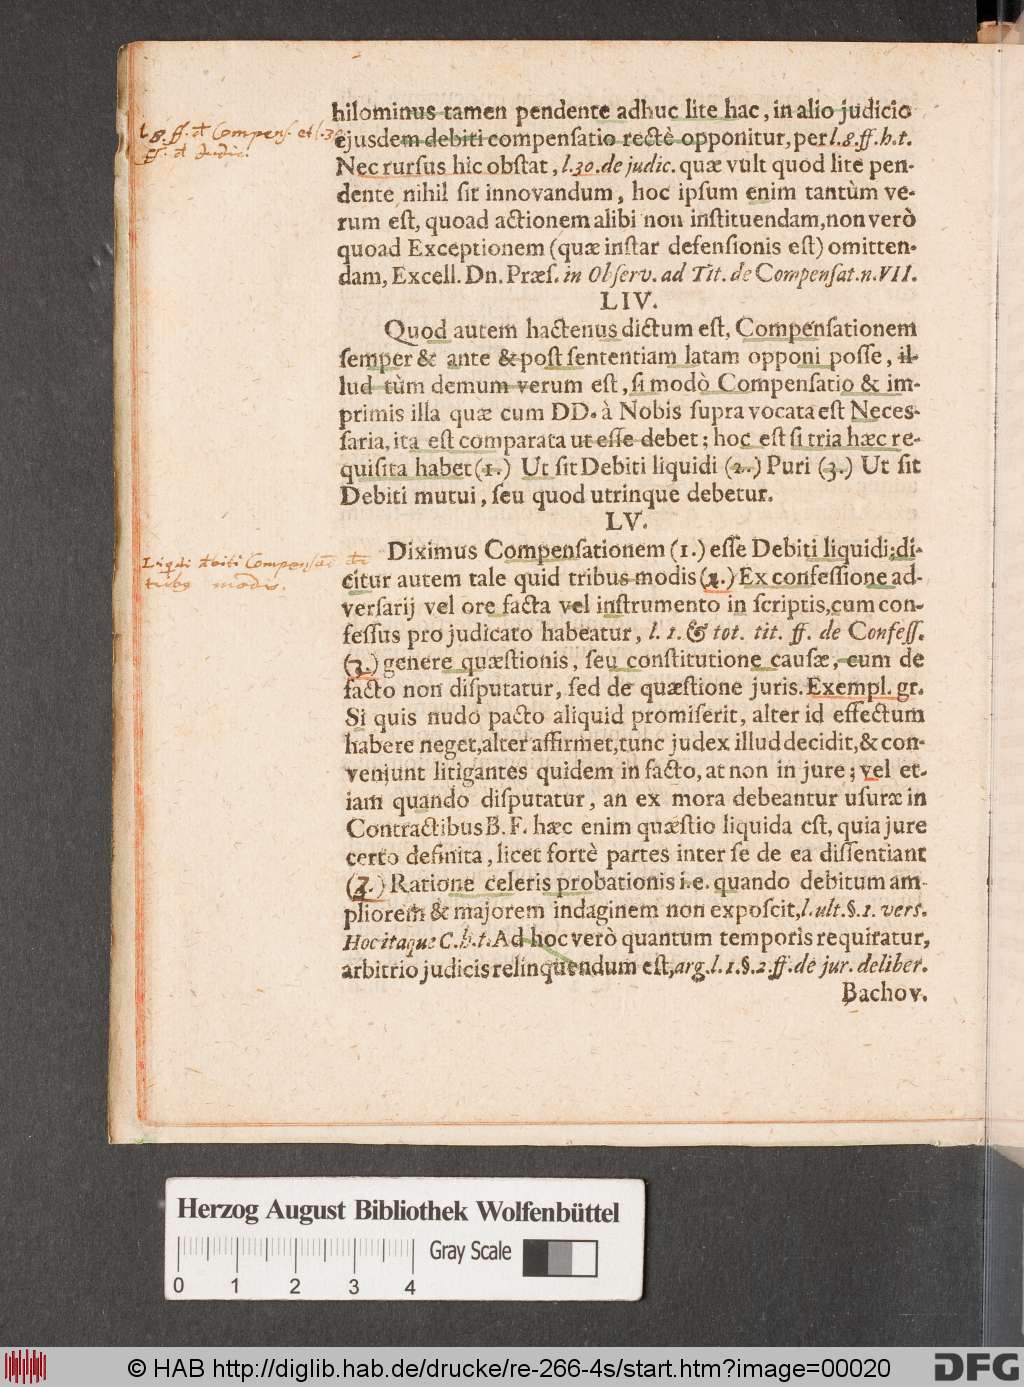 hilominus tamen pendente adhuc lite hac, in alio judicio
ejusdem debiti compensatio rectè opponitur, per l. 8. ff. h. t.
Nec rursus hic obstat, l. 30. de judic. quæ vult quod lite pen-
dente nihil sit innovandum, hoc ipsum enim tantùm ve-
rum est, quoad actionem alibi non instituendam, non verò
quoad Exceptionem (quæ instar defensionis est) omitten-
dam, Excell. Dn. Præs. in Observ. ad Tit. de Compensat. n. VII.
LIV.
Quod autem hactenus dictum est, Compensationem
semper & ante & post sententiam latam opponi posse, il-
lud tùm demum verum est, si modò Compensatio & im-
primis illa quæ cum DD. à Nobis supra vocata est Neces-
saria, ita est comparata ut esse debet; hoc est si tria hæc re-
quisita habet (1.) Ut sit Debiti liquidi (2.) Puri (3.) Ut sit
Debiti mutui, seu quod utrinque debetur.
LV.
Diximus Compensationem (1.) esse Debiti liquidi; di-
citur autem tale quid tribus modis (1.) Ex confessione ad-
versarij vel ore facta vel instrumento in scriptis, cum con-
fessus pro judicato habeatur, l. 1. & tot. tit. ff. de Confess.
(2.) genere quæstionis, seu constitutione causæ, cum de
facto non disputatur, sed de quæstione juris. Exempl. gr.
Si quis nudo pacto aliquid promiserit, alter id effectum
habere neget, alter affirmet, tunc judex illud decidit, & con-
veniunt litigantes quidem in facto, at non in jure; vel et-
iam quando disputatur, an ex mora debeantur usuræ in
Contractibus B. F. hæc enim quæstio liquida est, quia jure
certo definita, licet fortè partes inter se de ea dissentiant
(3.) Ratione celeris probationis i.e. quando debitum am-
pliorem & majorem indaginem non exposcit, l. ult. §. 1. vers.
Hoc itaque C. h. t. Ad hoc verò quantum temporis requiratur,
arbitrio judicis relinquendum est, arg. l. 1. §. 2. ff. de jur. deliber.
Bachov.
l. 8. ff. d Compens. et l. 30
ff. d Judic.
Liqdi dbiti Compens
tribq modis.
Herzog August Bibliothek Wolfenbüttel
Gray Scale
0 1 2 3 4
© HAB http://diglib.hab.de/drucke/re-266-4s/start.htm?image=00020
DFG